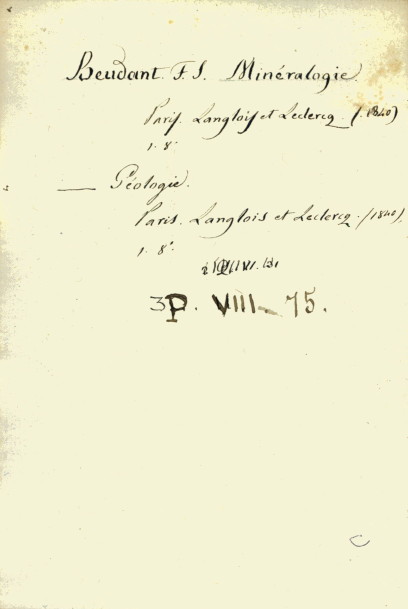 Beudant F. S. Minéralogie
Paris. Langlois et Leclercq. (1840)
1. 8°
— Géologie.
Paris. Langlois et Leclercq. (1840).
1. 8°.
3P. VIII - 75.